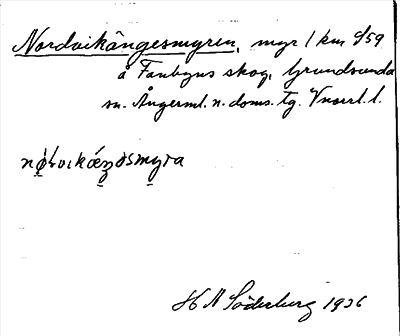 Nordvikängesmyren, myr 1 km S59
å Fanbyns skog, Grundsunda
sn. Ångerml. n. doms. tg. Vnorrl. l.
H N Söderberg 1936